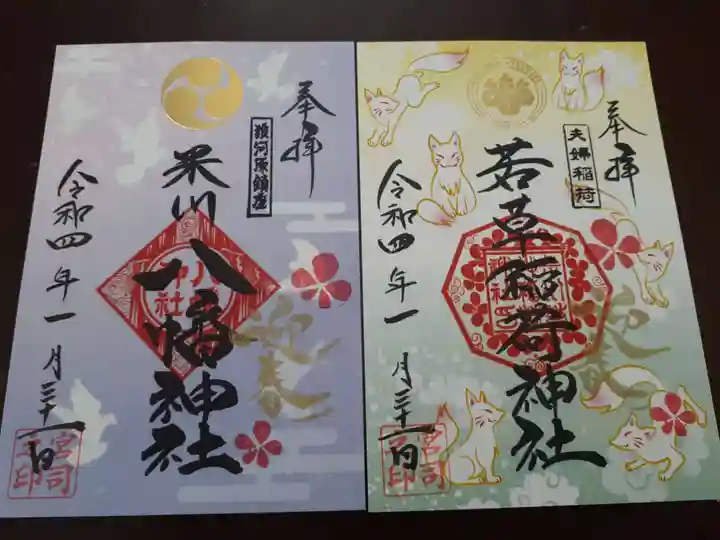 奉拝
狼河原鎮座
米川八幡神社
迎春
令和四年一月三十一日
宮司之印
奉拝
夫婦稲荷
若草稲荷神社
迎春
令和四年一月三十一日
宮司之印